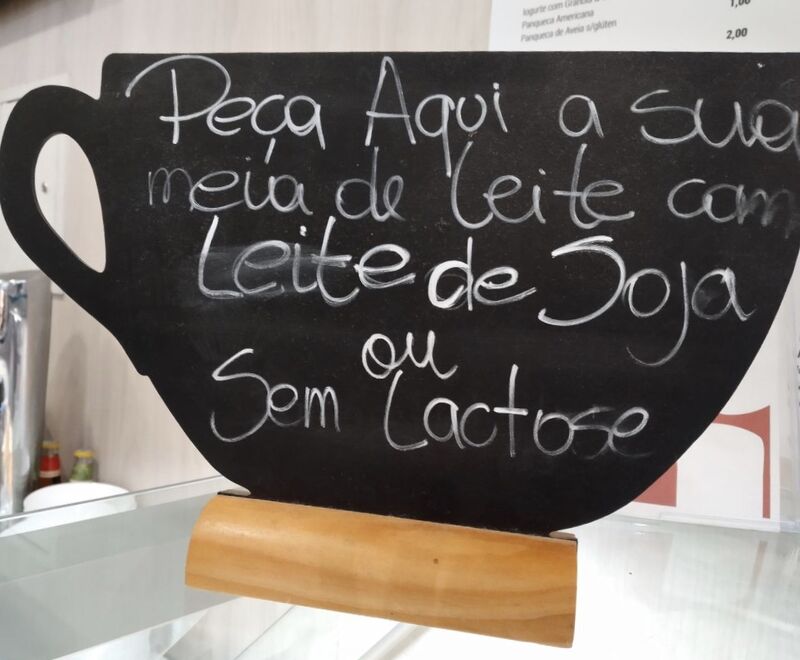 Iogurte com Granola
Panqueca Americana 1,00
Panqueca de Aveia s/glúten 2,00
Peça Aqui a sua
meia de leite com
Leite de Soja
ou
Sem Lactose